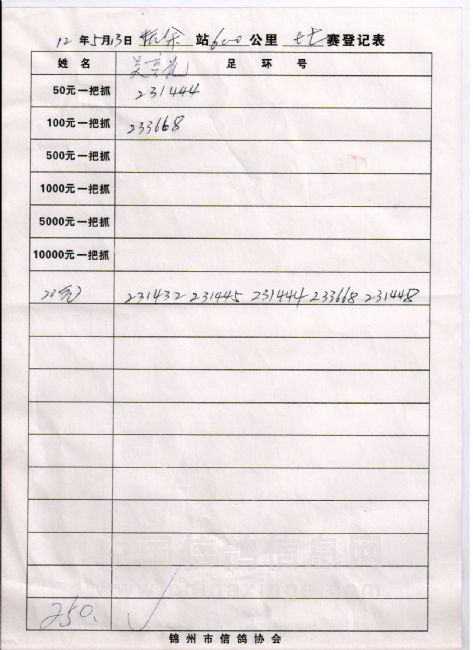 12 年 5 月 13 日 站 600 公里 比赛登记表
姓 名 足 环 号
50元一把抓 231444
100元一把抓 233668
500元一把抓
1000元一把抓
5000元一把抓
10000元一把抓
20元 231432 231445 231444 233668 231448
250. ✓
锦州市信鸽协会